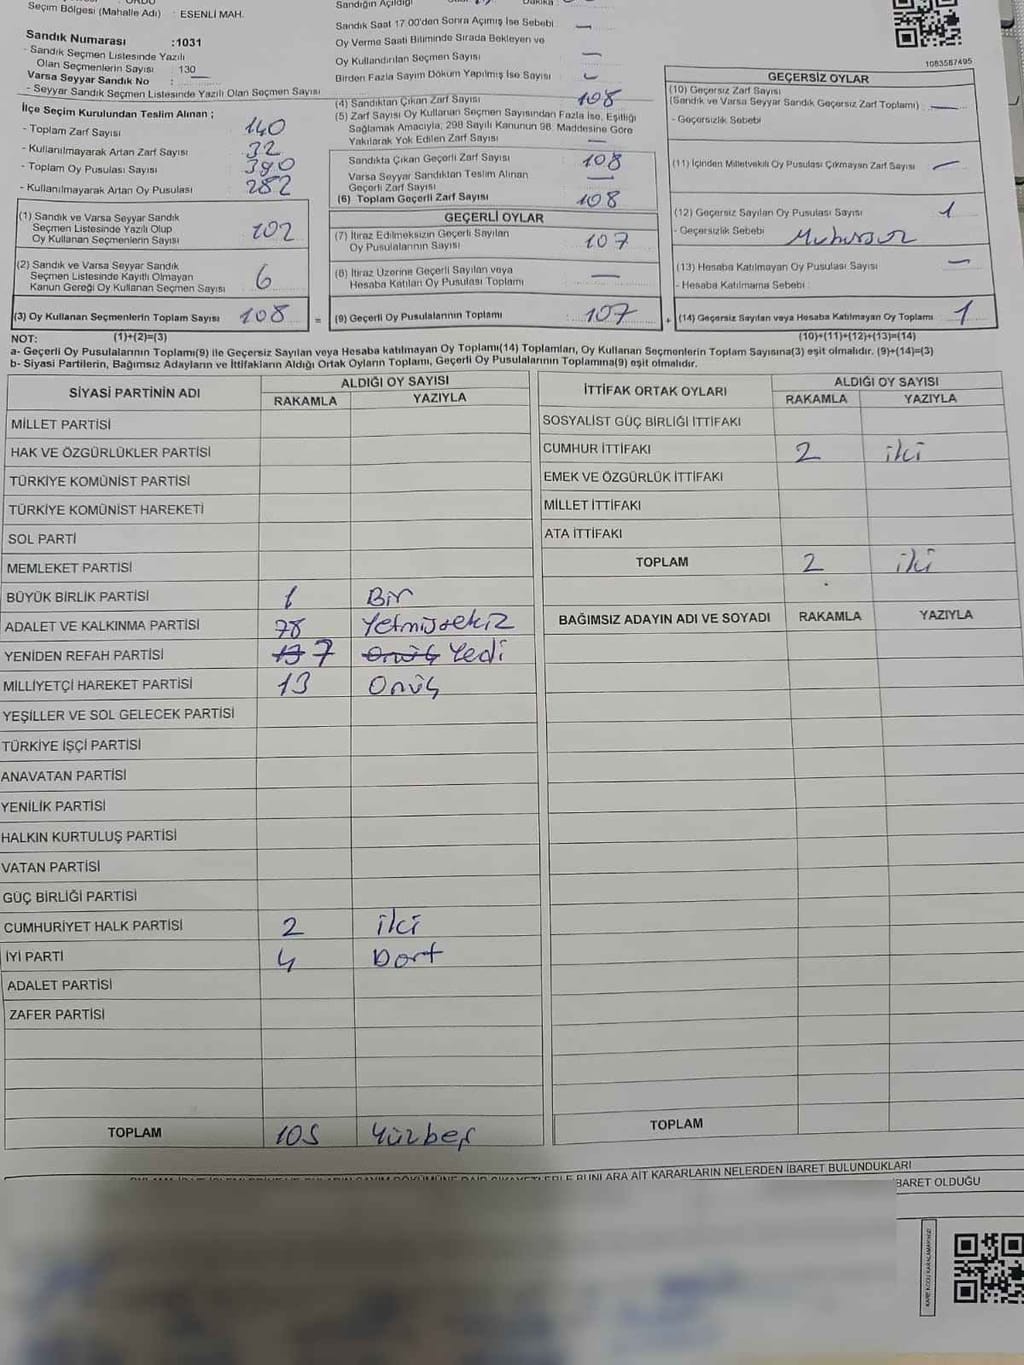 Sandığın Açıldığı
Dakika :
Seçim Bölgesi (Mahalle Adı) : ESENLİ MAH.
Sandık Saat 17.00'dan Sonra Açımış İse Sebebi —
Sandık Numarası :1031
- Sandık Seçmen Listesinde Yazılı
Olan Seçmenlerin Sayısı : 130
Varsa Seyyar Sandık No : —
- Seyyar Sandık Seçmen Listesinde Yazılı Olan Seçmen Sayısı
Oy Verme Saati Bitiminde Sırada Bekleyen ve
Oy Kullandırılan Seçmen Sayısı —
Birden Fazla Sayım Döküm Yapılmış İse Sayısı
1083587495
İlçe Seçim Kurulundan Teslim Alınan ;
- Toplam Zarf Sayısı 140
- Kullanılmayarak Artan Zarf Sayısı 32
- Toplam Oy Pusulası Sayısı 390
- Kullanılmayarak Artan Oy Pusulası 282
(1) Sandık ve Varsa Seyyar Sandık
Seçmen Listesinde Yazılı Olup
Oy Kullanan Seçmenlerin Sayısı 102
(2) Sandık ve Varsa Seyyar Sandık
Seçmen Listesinde Kayıtlı Olmayan
Kanun Gereği Oy Kullanan Seçmen Sayısı 6
(3) Oy Kullanan Seçmenlerin Toplam Sayısı 108 =
(4) Sandıktan Çıkan Zarf Sayısı 108
(5) Zarf Sayısı Oy Kullanan Seçmen Sayısından Fazla İse, Eşitliği
Sağlamak Amacıyla, 298 Sayılı Kanunun 98. Maddesine Göre
Yakılarak Yok Edilen Zarf Sayısı —
Sandıkta Çıkan Geçerli Zarf Sayısı 108
Varsa Seyyar Sandıktan Teslim Alınan
Geçerli Zarf Sayısı —
(6) Toplam Geçerli Zarf Sayısı 108
GEÇERLİ OYLAR
(7) İtiraz Edilmeksizin Geçerli Sayılan
Oy Pusulalarının Sayısı 107
(8) İtiraz Üzerine Geçerli Sayılan veya
Hesaba Katılan Oy Pusulası Toplamı —
(9) Geçerli Oy Pusulalarının Toplamı : 107 +
GEÇERSİZ OYLAR
(10) Geçersiz Zarf Sayısı
(Sandık ve Varsa Seyyar Sandık Geçersiz Zarf Toplamı) —
- Geçersizlik Sebebi
(11) İçinden Milletvekili Oy Pusulası Çıkmayan Zarf Sayısı —
(12) Geçersiz Sayılan Oy Pusulası Sayısı 1
- Geçersizlik Sebebi Mühürsür
(13) Hesaba Katılmayan Oy Pusulası Sayısı —
- Hesaba Katılmama Sebebi
(14) Geçersiz Sayılan veya Hesaba Katılmayan Oy Toplamı 1
NOT: (1)+(2)=(3) (10)+(11)+(12)+(13)=(14)
a- Geçerli Oy Pusulalarının Toplamı(9) ile Geçersiz Sayılan veya Hesaba katılmayan Oy Toplamı(14) Toplamları, Oy Kullanan Seçmenlerin Toplam Sayısına(3) eşit olmalıdır. (9)+(14)=(3)
b- Siyasi Partilerin, Bağımsız Adayların ve İttifakların Aldığı Ortak Oyların Toplamı, Geçerli Oy Pusulalarının Toplamına(9) eşit olmalıdır.
SİYASİ PARTİNİN ADI ALDIĞI OY SAYISI
RAKAMLA YAZIYLA
MİLLET PARTİSİ
HAK VE ÖZGÜRLÜKLER PARTİSİ
TÜRKİYE KOMÜNİST PARTİSİ
TÜRKİYE KOMÜNİST HAREKETİ
SOL PARTİ
MEMLEKET PARTİSİ
BÜYÜK BİRLİK PARTİSİ 1 Bir
ADALET VE KALKINMA PARTİSİ 78 Yetmişsekiz
YENİDEN REFAH PARTİSİ 13 7 Onüç Yedi
MİLLİYETÇİ HAREKET PARTİSİ 13 Onüç
YEŞİLLER VE SOL GELECEK PARTİSİ
TÜRKİYE İŞÇİ PARTİSİ
ANAVATAN PARTİSİ
YENİLİK PARTİSİ
HALKIN KURTULUŞ PARTİSİ
VATAN PARTİSİ
GÜÇ BİRLİĞİ PARTİSİ
CUMHURİYET HALK PARTİSİ 2 iki
İYİ PARTİ 4 Dort
ADALET PARTİSİ
ZAFER PARTİSİ
TOPLAM 105 Yüzbeş
İTTİFAK ORTAK OYLARI ALDIĞI OY SAYISI
RAKAMLA YAZIYLA
SOSYALİST GÜÇ BİRLİĞİ İTTİFAKI
CUMHUR İTTİFAKI 2 iki
EMEK VE ÖZGÜRLÜK İTTİFAKI
MİLLET İTTİFAKI
ATA İTTİFAKI
TOPLAM 2 iki
BAĞIMSIZ ADAYIN ADI VE SOYADI RAKAMLA YAZIYLA
TOPLAM
BUNLARA AİT KARARLARIN NELERDEN İBARET BULUNDUKLARI
BARET OLDUĞU